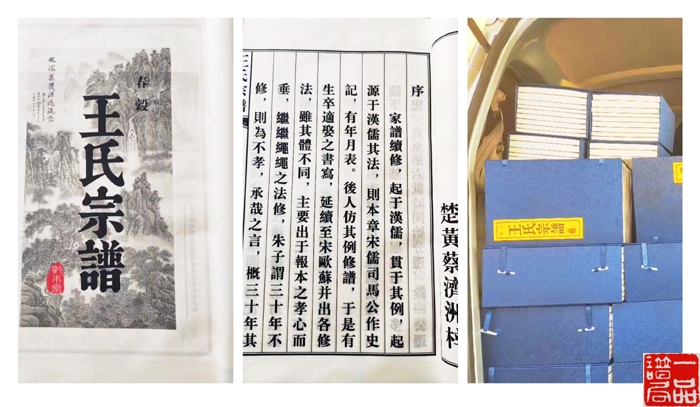 春穀
王氏宗譜
序
家譜續修，起于漢儒，貫于其例，起
源于漢儒其法，則本章宋儒司馬公作史
記，有年月表。後人仿其例修譜，于是有
生卒適娶之書寫，延續至宋歐蘇并出各修
法，雖其體不同，主要出于報本之孝心而
垂，繼繼繩繩之法修，朱子謂三十年不
修，則為不孝，承哉之言，概三十年其
楚黃蔡濟洲梓
王氏宗譜
一品譜局